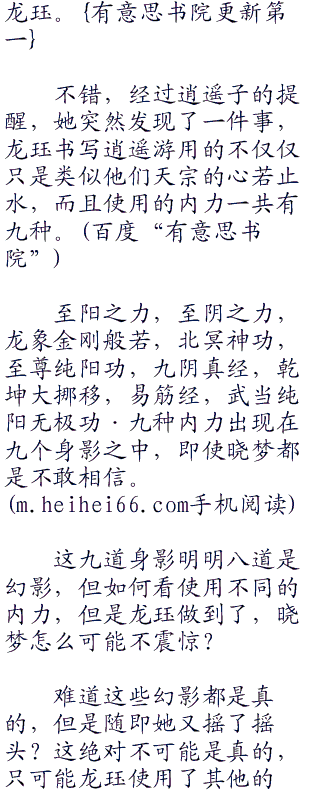 龙珏。{有意思书院更新第
一}
不错，经过逍遥子的提
醒，她突然发现了一件事，
龙珏书写逍遥游用的不仅仅
只是类似他们天宗的心若止
水，而且使用的内力一共有
九种。(百度“有意思书
院”)
至阳之力，至阴之力，
龙象金刚般若，北冥神功，
至尊纯阳功，九阴真经，乾
坤大挪移，易筋经，武当纯
阳无极功·九种内力出现在
九个身影之中，即使晓梦都
是不敢相信。
(m.heihei66.com手机阅读)
这九道身影明明八道是
幻影，但如何看使用不同的
内力，但是龙珏做到了，晓
梦怎么可能不震惊？
难道这些幻影都是真
的，但是随即她又摇了摇
头？这绝对不可能是真的，
只可能龙珏使用了其他的